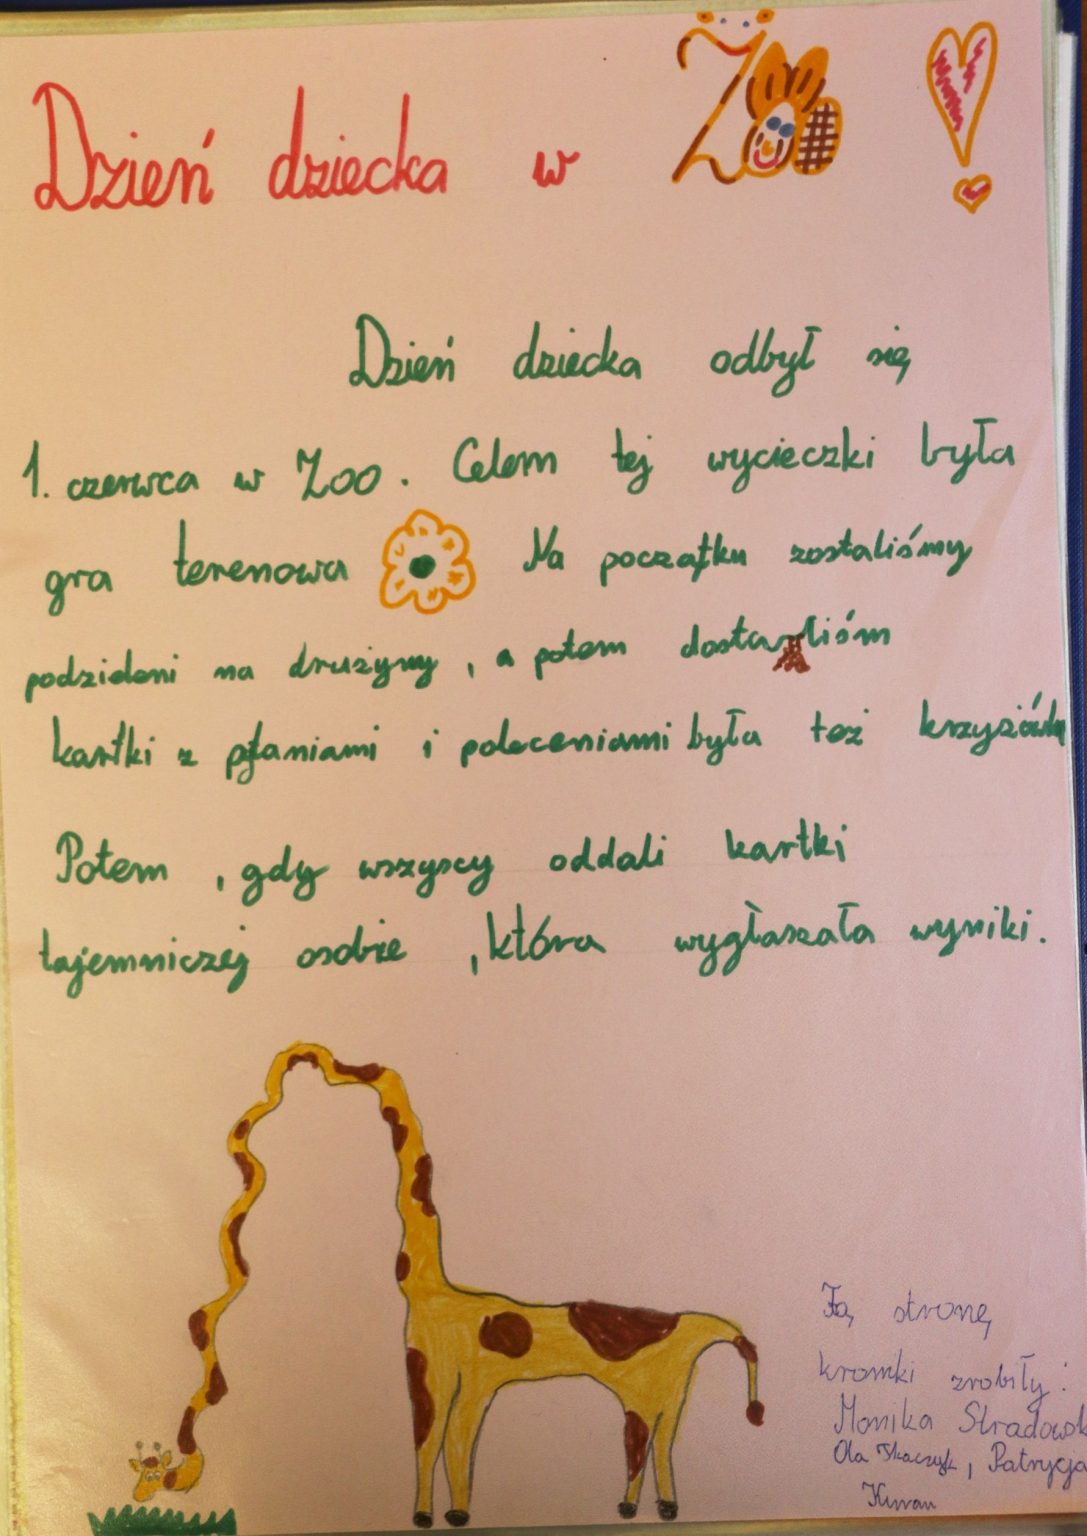 Dzień dziecka w Zoo!
Dzień dziecka odbył się
1. czerwca w Zoo. Celem tej wycieczki była
gra terenowa Na początku zostaliśmy
podzieleni na drużyny, a potem dostaliśm
kartki z pytaniami i poleceniami była też krzyżówka
Potem, gdy wszyscy oddali kartki
tajemniczej osobie, która wygłaszała wyniki.
Tą stronę
kromki zrobiły:
Monika Stradowsk
Ola Tkaczyk, Patrycja